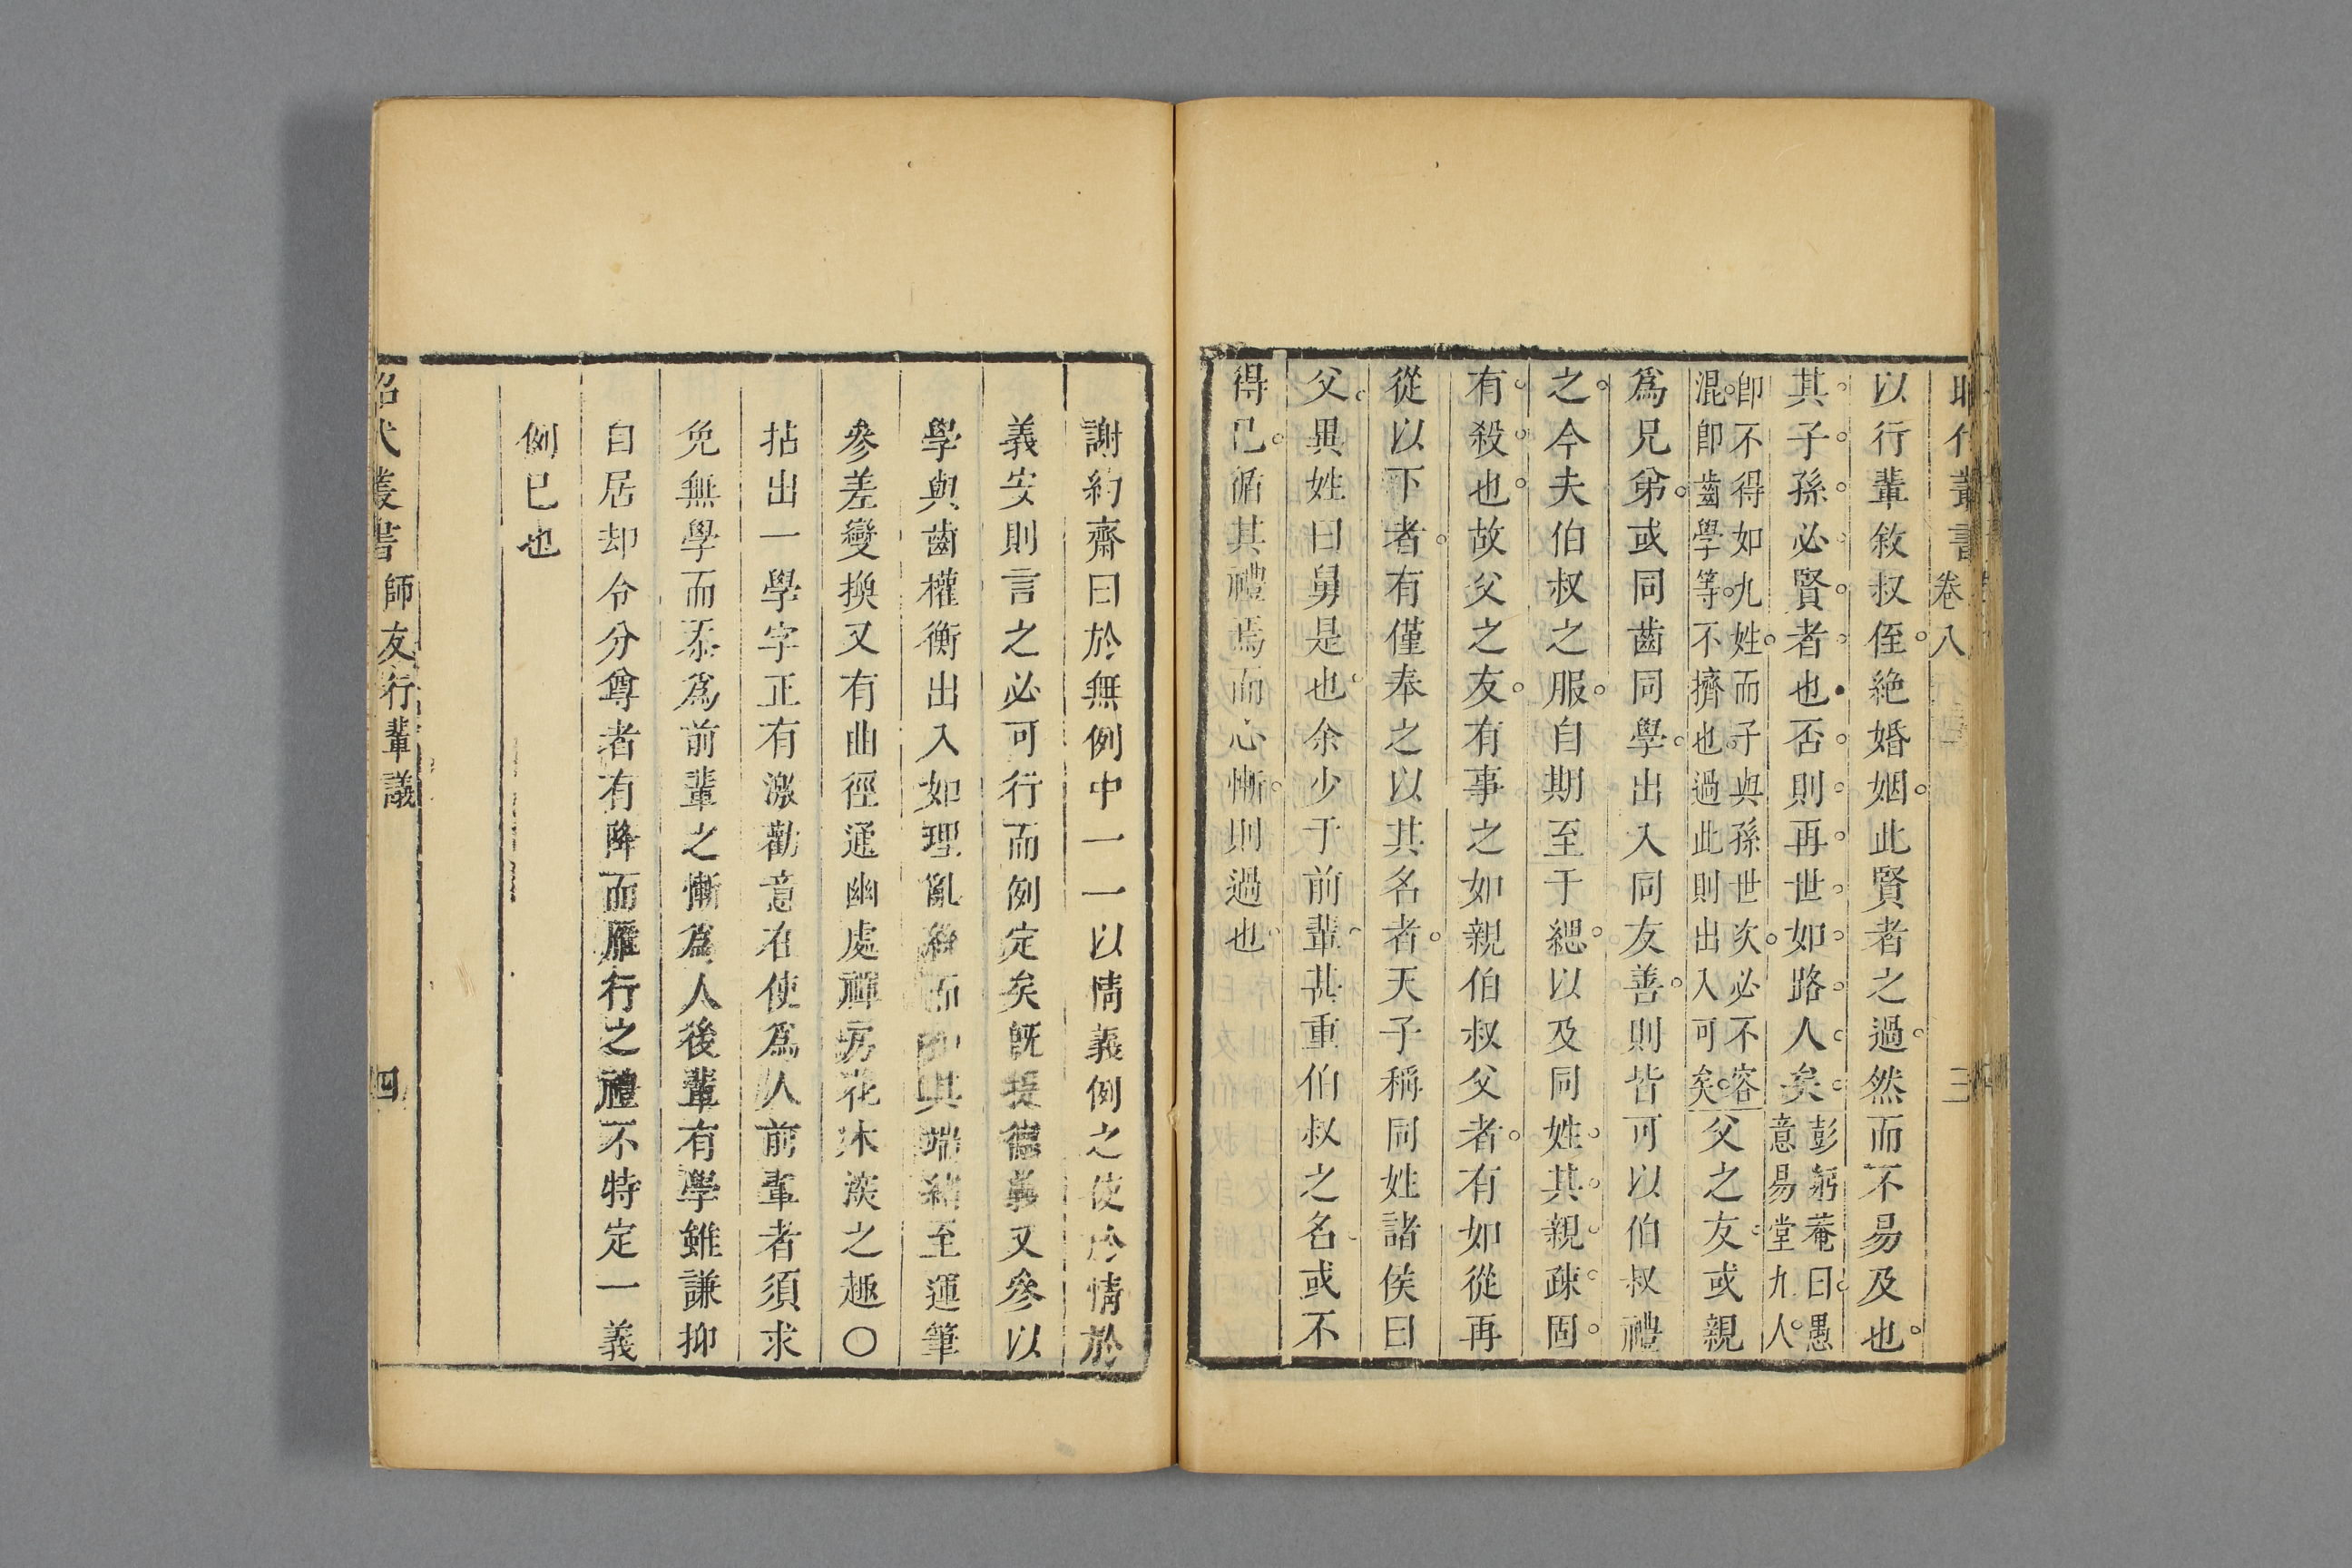 昭代叢書卷八 三
以行輩敘叔侄絶婚姻此賢者之過然而不易及也
其子孫必賢者也否則再世如路人矣彭躬菴曰愚意易堂九人
卽不得如九姓而子與孫世次必不容混卽齒學等不擠也過此則出入可矣父之友或親
爲兄弟或同齒同學出入同友善則皆可以伯叔禮
之今夫伯叔之服自期至于緦以及同姓其親疎固
有殺也故父之友有事之如親伯叔父者有如從再
從以下者有僅奉之以其名者天子稱同姓諸侯曰
父異姓曰舅是也余少于前輩甚重伯叔之名或不
得已循其禮焉而心慚則過也
謝約齋曰於無例中一一以情義例之使於情於
義安則言之必可行而例定矣旣援德義又參以
學與齒權衡出入如理亂絲而端緒至運筆
參差變換又有曲徑通幽處禪房花木深之趣〇
拈出一學字正有激勸意在使爲人前輩者須求
免無學而忝爲前輩之慚爲人後輩有學雖謙抑
自居却令分尊者有降而雁行之禮不特定一義
例已也
昭代叢書師友行輩議 四